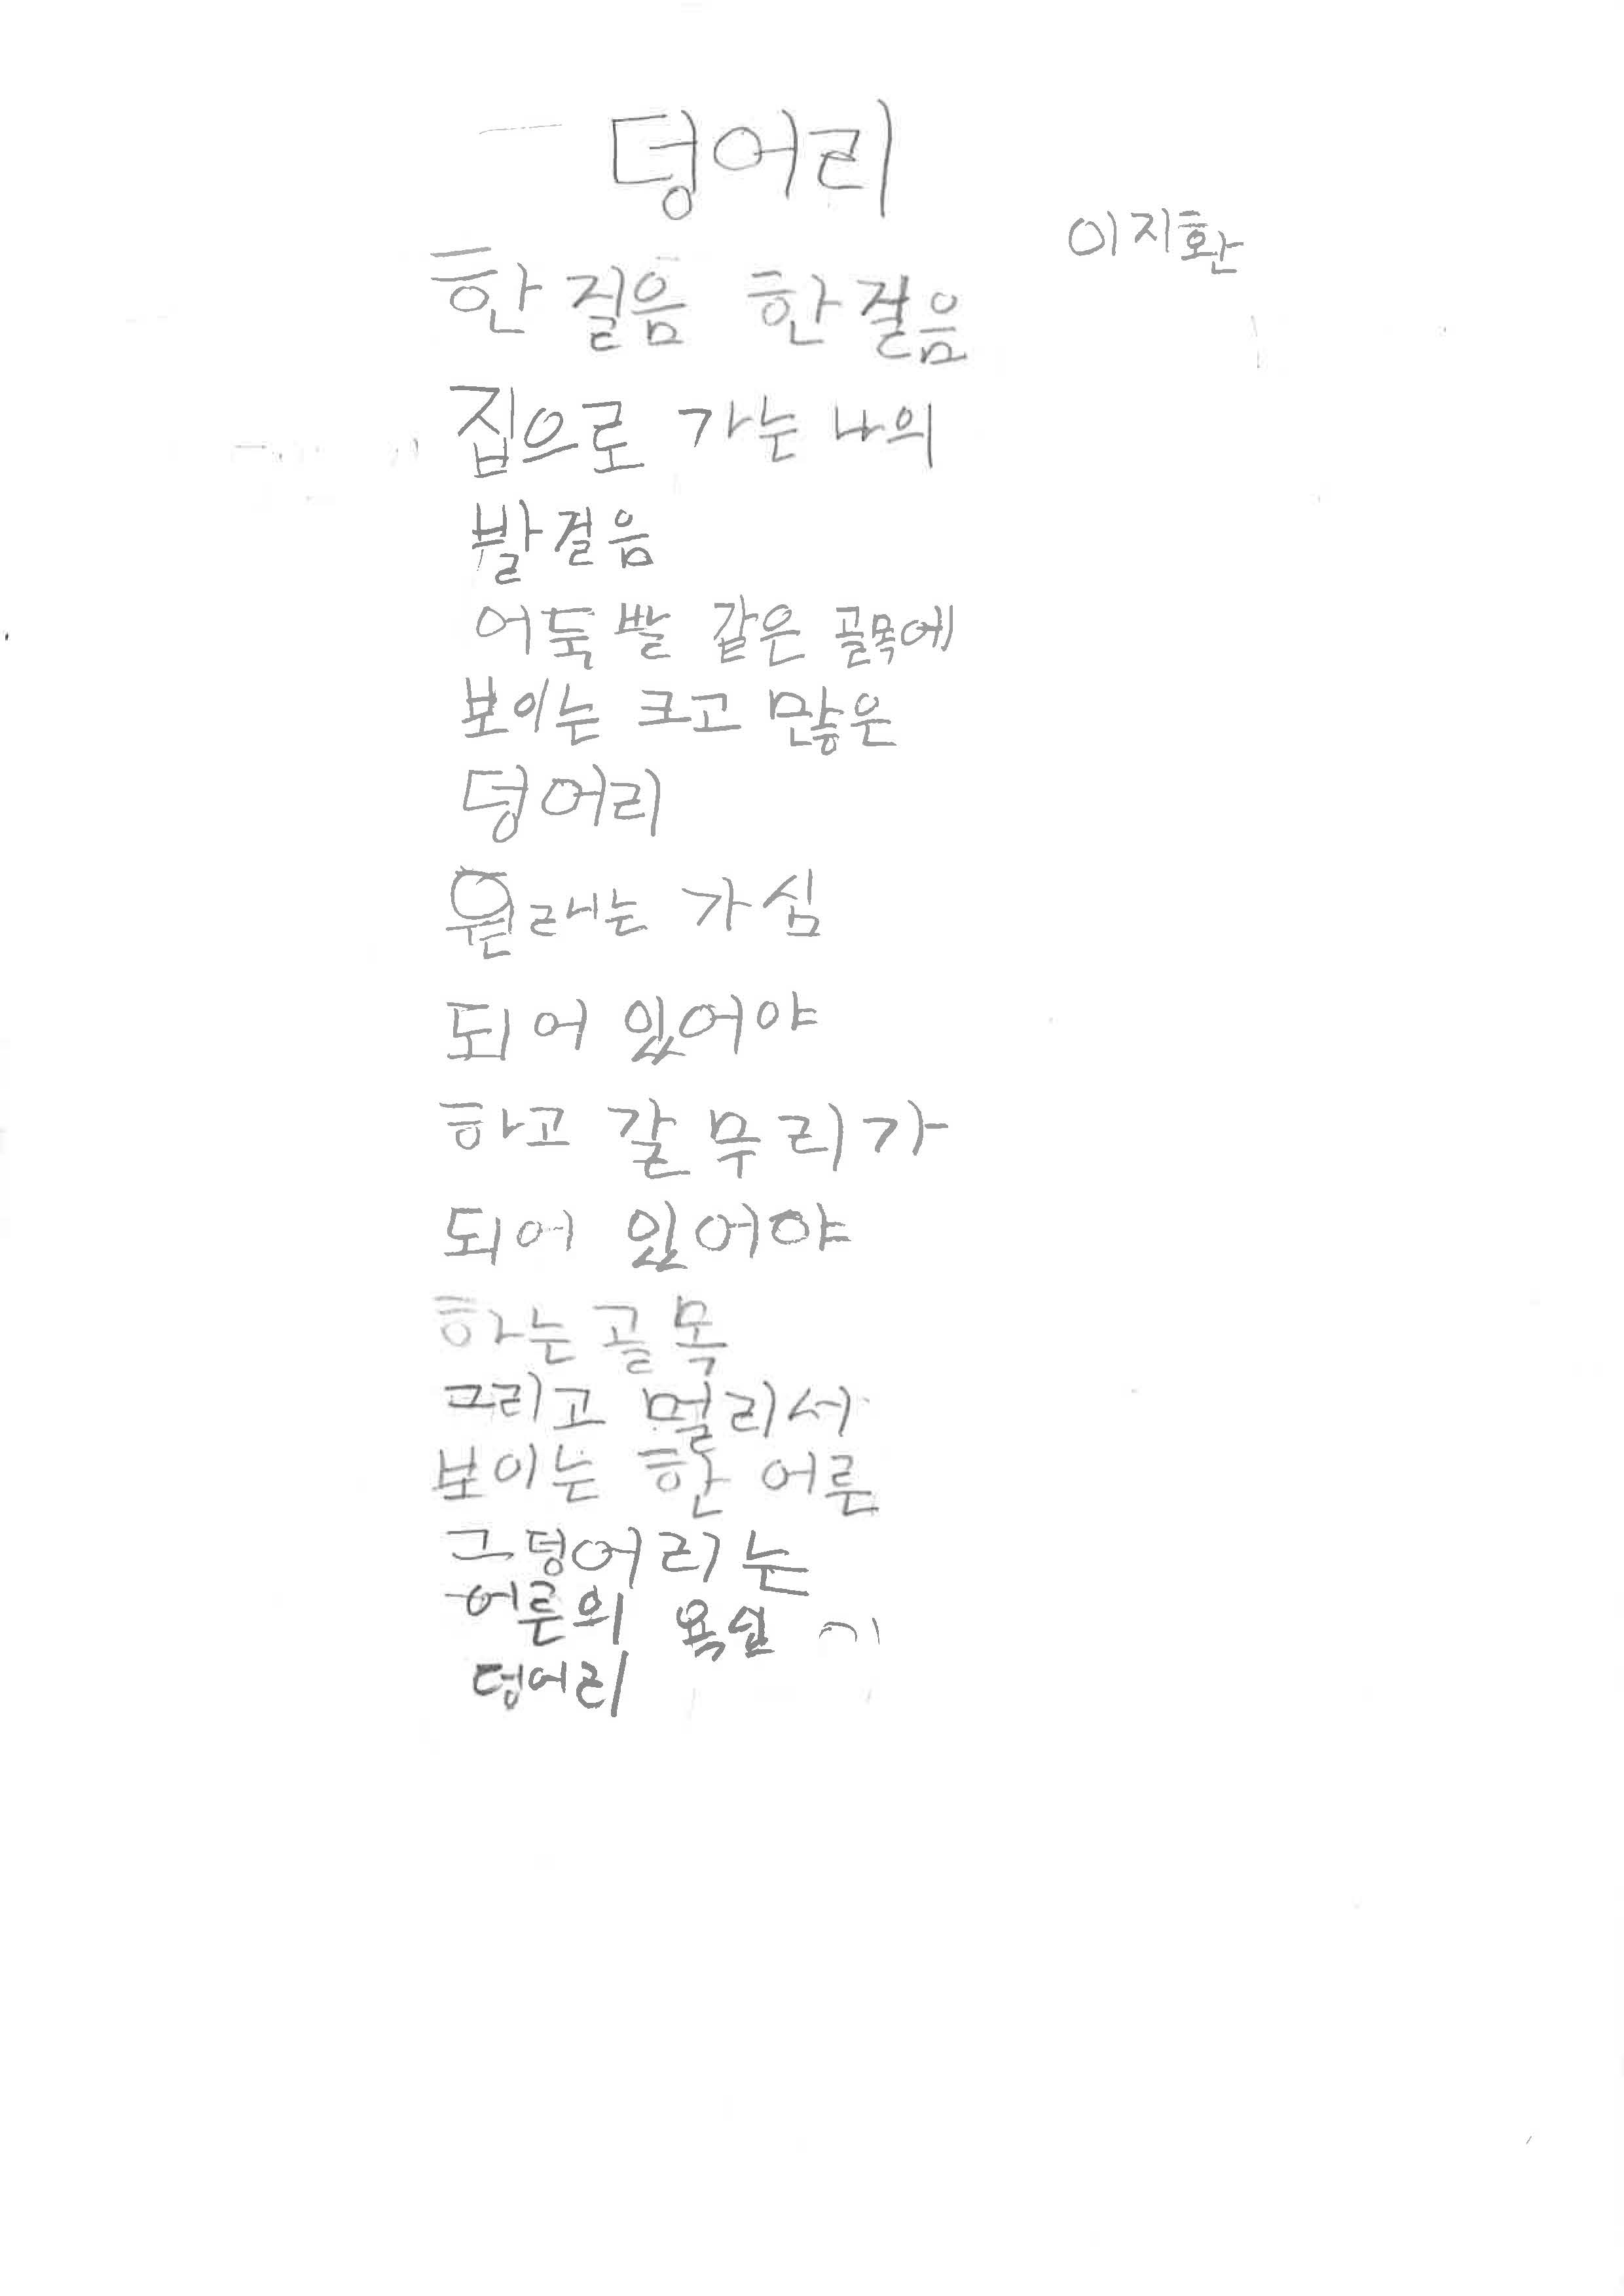 덩어리
이지환
한 걸음 한 걸음
집으로 가는 나의
발걸음
어둑발 같은 골목에
보이는 크고 많은
덩어리
원래는 가심
되어 있어야
하고 갈무리가
되어 있어야
하는 골목
그리고 멀리서
보이는 한 어른
그 덩어리는
어른의 욕심
덩어리